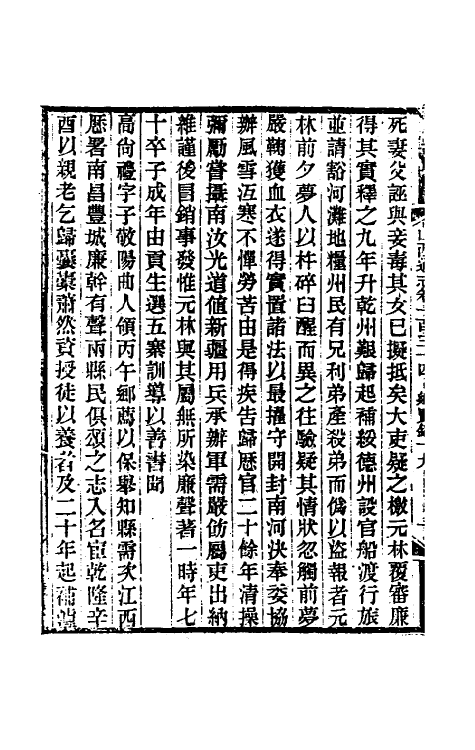 死妻父誣與妾毒其女已擬抵矣大吏疑之檄元林覆審廉
得其實釋之九年升乾州艱歸起補綏德州設官船渡行旅
並請豁河灘地糧州民有兄利弟產殺弟而僞以盜報者元
林前夕夢人以杵碎臼醒而異之往驗疑其情狀忽觸前夢
嚴鞫獲血衣遂得實置諸法以最擢守開封南河決奉委協
辦風雪沍寒不憚勞苦由是得疾告歸歷官二十餘年清操
彌勵嘗攝南汝光道值新疆用兵承辦軍需嚴飭屬吏出納
維謹後冒銷事發惟元林與其屬無所染廉聲著一時年七
十卒子成年由貢生選五寨訓導以善書聞
高尚禮字子敬陽曲人領丙午鄉薦以保舉知縣需次江西
歷署南昌豐城廉幹有聲兩縣民俱頌之志入名宦乾隆辛
酉以親老乞歸囊橐蕭然資授徒以養者及二十年起補